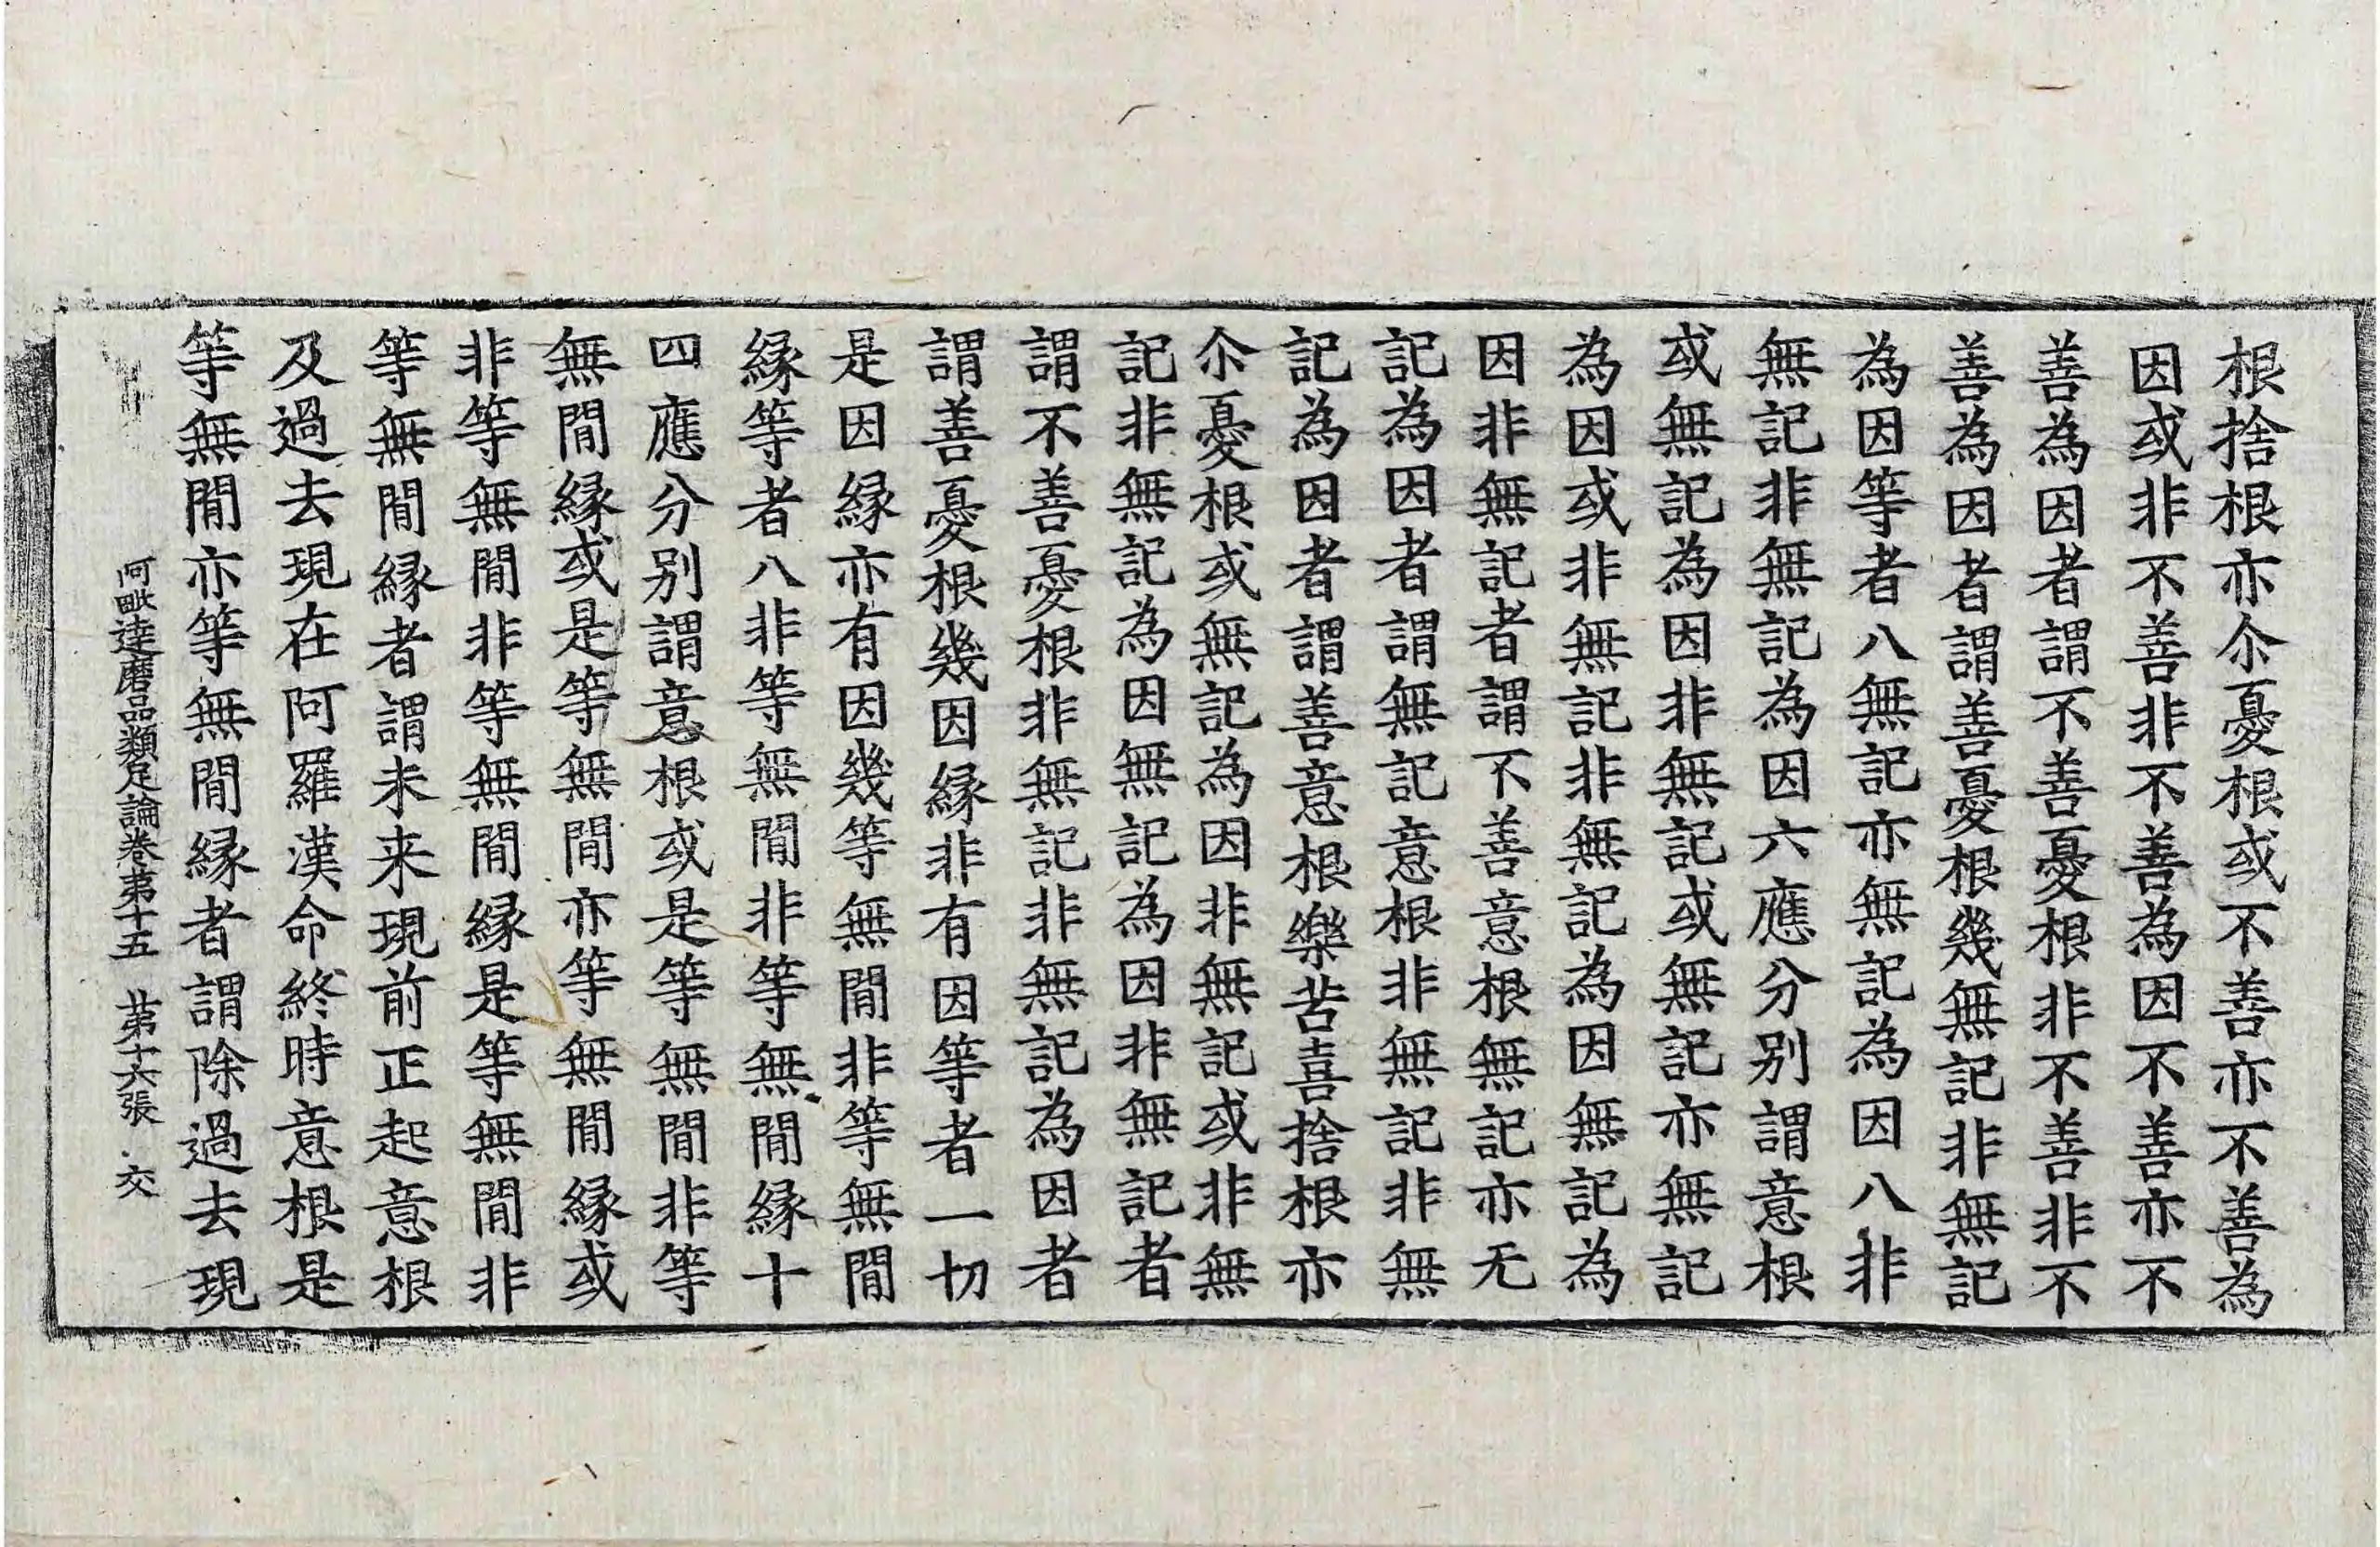 根捨根亦尒憂根或不善亦不善為
因或非不善非不善為因不善亦不
善為因者謂不善憂根非不善非不
善為因者謂善憂根幾無記非無記
為因等者八無記亦無記為因八非
無記非無記為因六應分別謂意根
或無記為因非無記或無記亦無記
為因或非無記非無記為因無記為
因非無記者謂不善意根無記亦无
記為因者謂無記意根非無記非無
記為因者謂善意根樂苦喜捨根亦
尒憂根或無記為因非無記或非無
記非無記為因無記為因非無記者
謂不善憂根非無記非無記為因者
謂善憂根幾因緣非有因等者一切
是因緣亦有因幾等無閒非等無閒
緣等者八非等無閒非等無閒緣十
四應分別謂意根或是等無閒非等
無閒緣或是等無閒亦等無閒緣或
非等無閒非等無閒緣是等無閒非
等無閒緣者謂未来現前正起意根
及過去現在阿羅漢命終時意根是
等無閒亦等無閒緣者謂除過去現
阿毗達磨品類足論卷苐十五 苐十六張 交